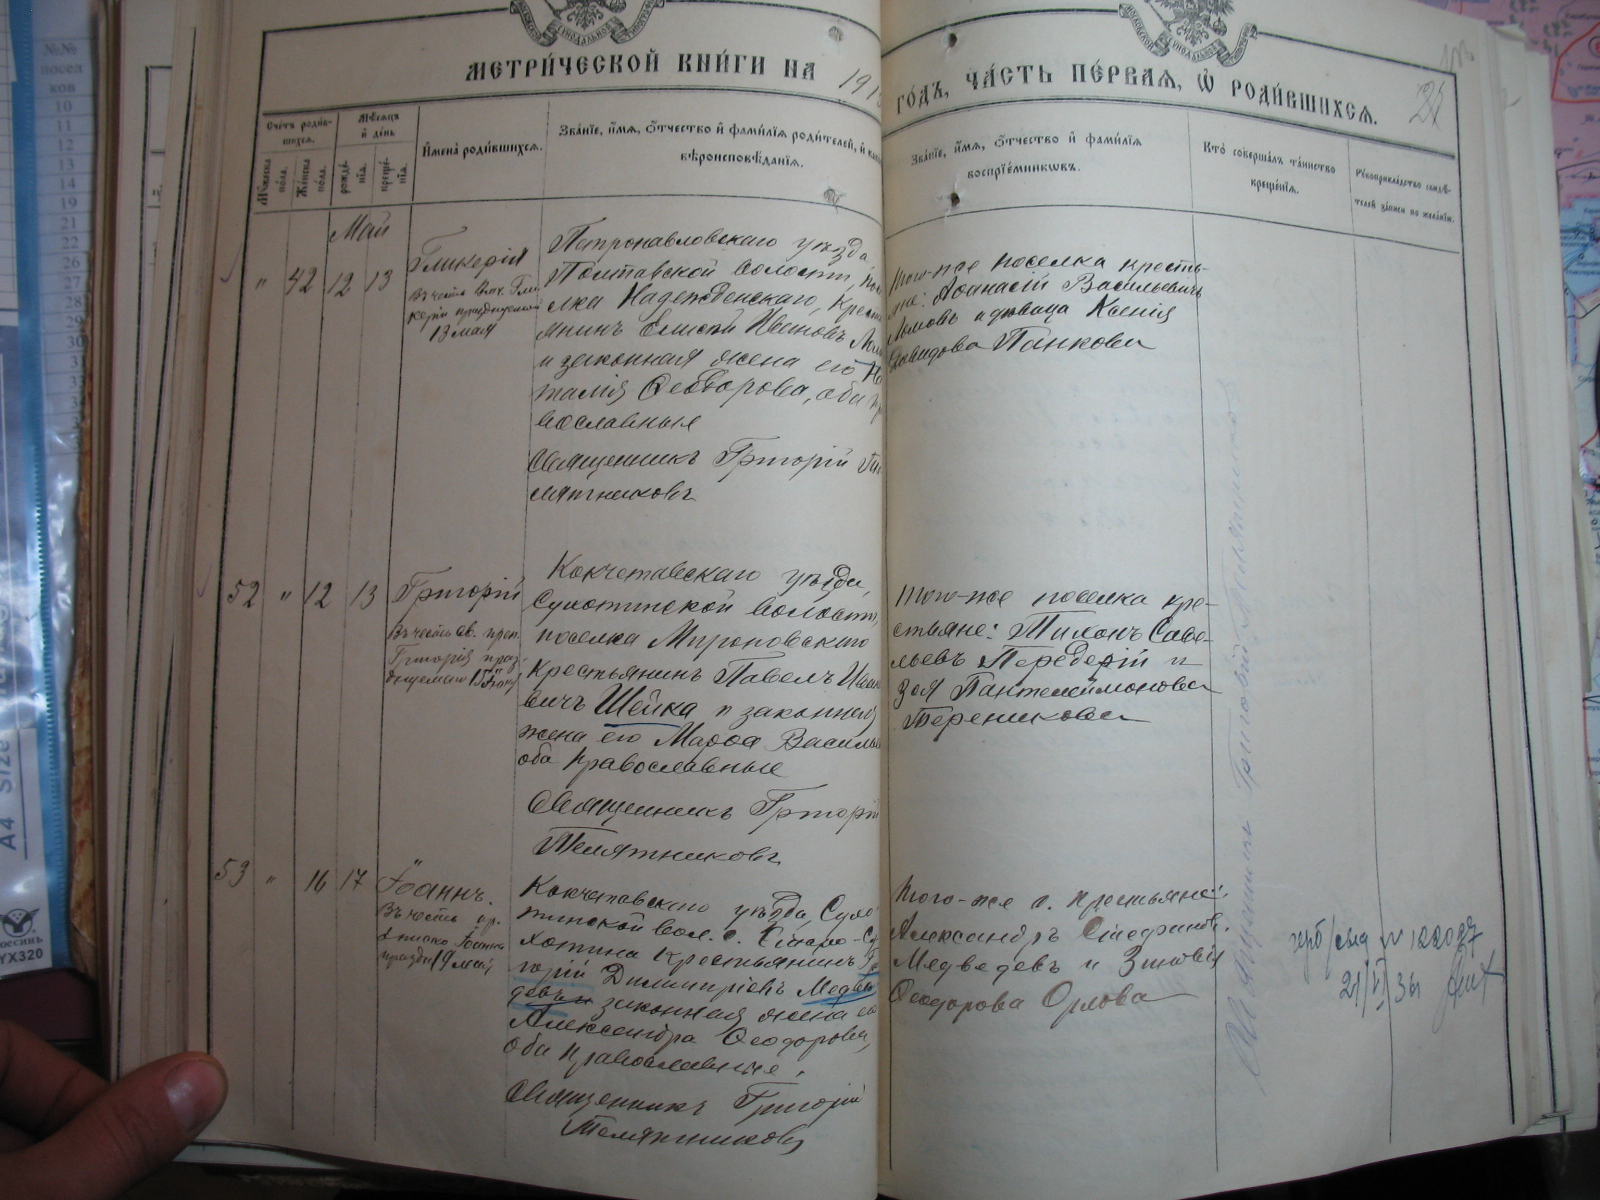 МЕТРИ́ЧЕСКОЙ КНИ́ГИ НА 191
ГО́ДЪ, ЧА́СТЬ ПЕ́РВАЯ, Ѿ РОДИ́ВШИХСЯ.
Сче́тъ роди́в-
шихся.
Му́жеска
по́ла.
Же́нска
по́ла.
Мѣ́сяцъ
и де́нь
рожде́-
нія.
креще́-
нія.
Имена̀ роди́вшихся.
Зва́ніе, и́мя, ѻ́тчество и фами́лія роди́телей, и
вѣроисповѣ́данія.
Зва́ніе, и́мя, ѻ́тчество и фами́лія
воспріе́мниковъ.
Кто̀ соверша́лъ та́инство
креще́нія.
Рукоприкла́дство свидѣ́-
телей за́писи по жела́нію.
Май
" 42 12 13
Гликерія
Въ честь
13 мая
Петропавловскаго уѣзда
Полтавской волости,
лка Надежденскаго, Крест
янинъ Елисей Ивановъ
и законная жена его
талія Ѳеодорова, оба
вославные
Священникъ Григорій
лятниковъ
Того-же поселка кресть-
яне: Аѳанасій Васильевичъ
и дѣвица Ксенія
Давидова Панкова
52 " 12 13
Григорій
Въ честь св. преп.
Григорія праз-
Кокчетавскаго уѣзда,
Сухотинской волости,
поселка Мироновскаго
Крестьянинъ Павелъ Ива
вичъ Шейка и законная
жена его Марѳа Василь
оба православные
Священникъ Григорій
Телятниковъ
Того-же поселка кре-
стьяне: Тихонъ Саве-
льевъ Передерій и
Зоя Пантелеймонова
Тереникова
53 " 16 17
Іоаннъ.
Въ честь
Іоанна
19 мая
Кокчетавскаго уѣзда, Сухо
тинской вол. с. Старо-Су
хотина Крестьянинъ
горій Димитріевъ Медвѣ
девъ и законная жена ео
Александра Ѳеодорова,
оба православные.
Священникъ Григорій
Телятниковъ
Того-же с. крестьяне:
Александръ Стефанов.
Медведевъ и Зиновія
Ѳеодорова Орлова
Священникъ Григорій Телятниковъ
№№
посел
ков
10
11
12
13
14
19
21
22
26
27
28
29
30
31
A4 Size
YX320